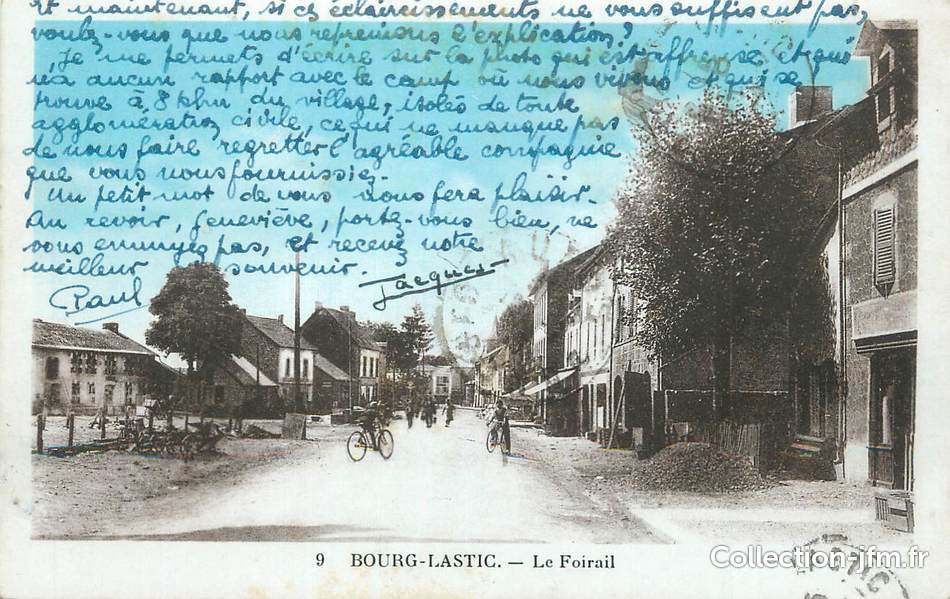 Et maintenant, si ces éclaircissements ne vous suffisent pas,
voulez-vous que nous reprenions l'explication ?
Je me permets d'écrire sur la photo qui est affreuse et qui
n'a aucun rapport avec le camp où nous vivons et qui se
trouve à 8 khm du village, isolés de toute
agglomération civile, ce qui ne manque pas
de nous faire regretter l'agréable compagnie
que vous nous fournissiez.
Un petit mot de vous nous fera plaisir.
Au revoir, Geneviève, portez-vous bien, ne
vous ennuyez pas, et recevez notre
meilleur souvenir.
Jacques
Paul
9 BOURG-LASTIC. — Le Foirail
Collection-jfm.fr